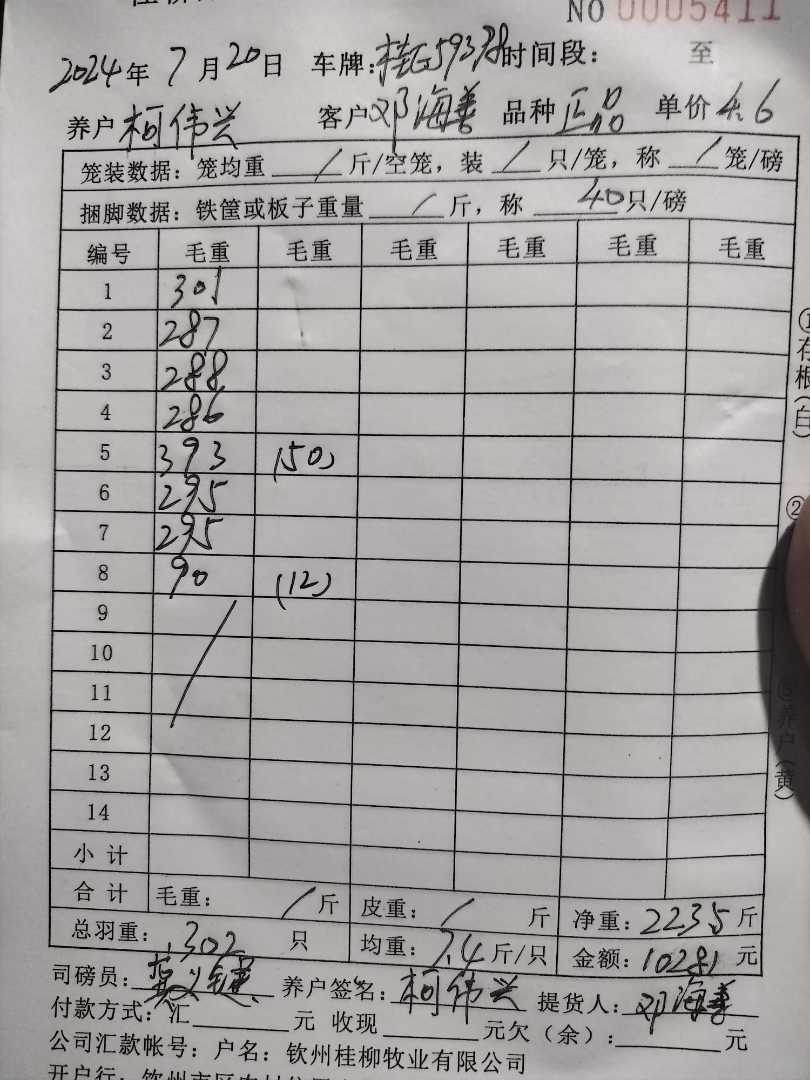 NO 0005411
2024年 7月20日 车牌: 时间段: 至
养户 柯伟兴 客户 邓海善 品种 正品 单价 4.6
笼装数据: 笼均重 / 斤/空笼, 装 / 只/笼, 称 / 笼/磅
捆脚数据: 铁筐或板子重量 / 斤, 称 40 只/磅
编号 毛重 毛重 毛重 毛重 毛重 毛重
1 301
2 287
3 288
4 286
5 393 (50)
6 295
7 295
8 90 (12)
9
10
11
12
13
14
小计
合计 毛重: / 斤 皮重: / 斤 净重: 2235 斤
总羽重: 302 只 均重: 7.4 斤/只 金额: 10281 元
司磅员: 养户签名: 柯伟兴 提货人: 邓海善
付款方式: 汇 元 收现 元欠(余): 元
公司汇款帐号: 户名: 钦州桂柳牧业有限公司
开户行:
①存根(白)
②
③养户(黄)